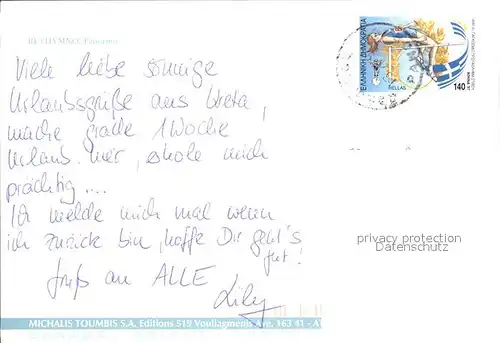 RETHYMNO. Panorama
Viele liebe sonnige
Urlaubsgrüße aus Kreta,
mache grade 1 Woche
Urlaub hier, erhole mich
prächtig....
Ich melde mich mal wenn
ich zurück bin, hoffe Dir geht's
gut!
Gruß an ALLE
Lily
ΕΛΛΗΝΙΚΗ ΔΗΜΟΚΡΑΤΙΑ
HELLAS
140
privacy protection
Datenschutz
MICHALIS TOUMBIS S.A. Editions 519 Vouliagmenis Ave. 163 41 - A